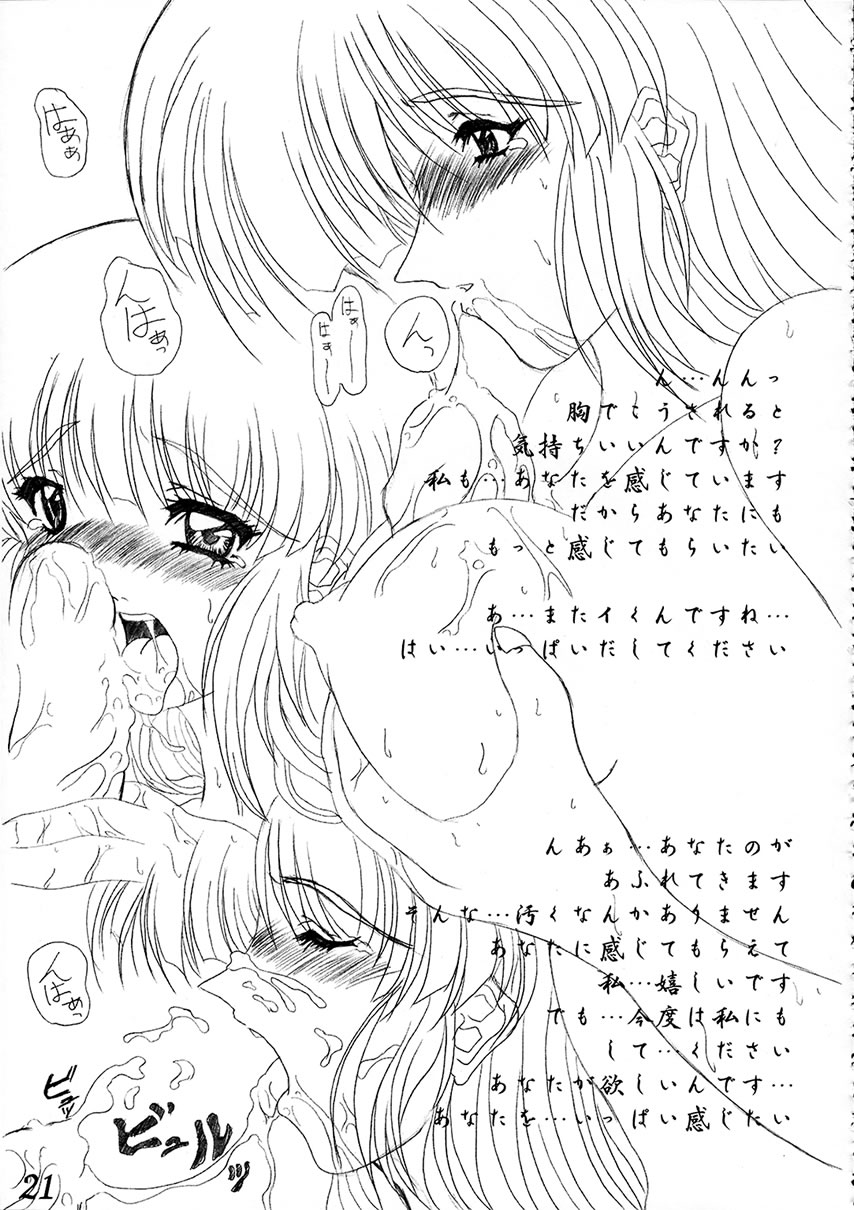 はあぁ
んはぁっ
はぁーー
はぁーー
んっ
ん…んんっ
胸でこうされると
気持ちいいんですか？
私も…あなたを感じています
だからあなたにも
もっと感じてもらいたい
あ…またイくんですね…
はい…いっぱいだしてください
んあぁ…あなたのが
あふれてきます
そんな…汚くなんかありません
あなたに感じてもらえて
私…嬉しいです
でも…今度は私にも
して…ください
あなたが欲しいんです…
あなたを…いっぱい感じたい
んはぁっ
ビュッ
ビュルッ
21